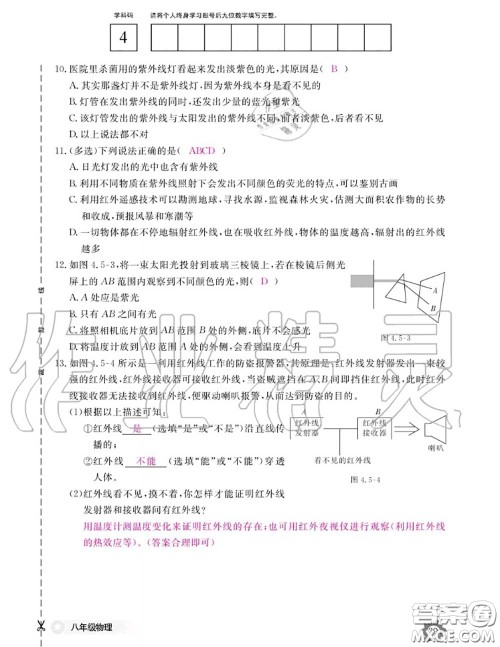 学科码 请将个人终身学习账号后九位数字填写完整。
4
10. 医院里杀菌用的紫外线灯看起来发出淡紫色的光,其原因是( B )
A. 其实那盏灯并不是紫外线灯,因为紫外线本身是看不见的
B. 灯管在发出紫外线的同时,还发出少量的蓝光和紫光
C. 该灯发出的紫外线与太阳发出的紫外线不同,前者淡紫色,后者无色
D. 以上说法都不对
11. (多选)下列说法正确的是( ABCD )
A. 日光灯发出的光中也含有紫外线
B. 利用不同物质在紫外线照射下会发出不同颜色的荧光的特点,可以鉴别古画
C. 利用红外遥感技术可以勘测地热、寻找水源、监视森林火灾,估测大面积农作物的长势
和收成,预报风暴和寒潮等
D. 一切物体都在不停地辐射红外线,也在吸收红外线,物体的温度越高,辐射出的红外线
越多
12. 如图 4.5-3,将一束太阳光投射到玻璃三棱镜上,若在棱镜后侧光
屏上的 AB 范围内观察到不同颜色的光,则( D )
A. A 处应是紫光
B. 只有 AB 之间有光
C. 将照相机底片放到 AB 范围 B 处的外侧,底片不会感光
D. 将温度计放到 AB 范围 A 处的外侧,会看到温度上升
A
B
图 4.5-3
13. 如图 4.5-4 所示是一利用红外线工作的防盗报警器,其原理是:红外线发射器发出一束较
强的红外线,红外线接收器可接收红外线,当盗贼遮挡在 A、B 间即挡住红外线,此时红外
线接收器无法接收到红外线,便驱动喇叭报警,从而达到防盗的目的。
(1)根据以上描述可知:
①红外线 是 (选填“是”或“不是”)沿直线传
播的;
②红外线 不能 (选填“能”或“不能”)穿透
人体。
A
B
红外线
发射器
红外线
接收器
看不见的红外线
喇叭
图 4.5-4
(2)红外线看不见,摸不着,你怎样才能证明红外线
发射器和接收器间有红外线?
用温度计测温度变化来证明红外线的存在;也可用红外夜视仪进行观察(利用红外线
的热效应等)。(答案合理即可)
作业精灵
八年级物理
答案圈
MXQE.COM